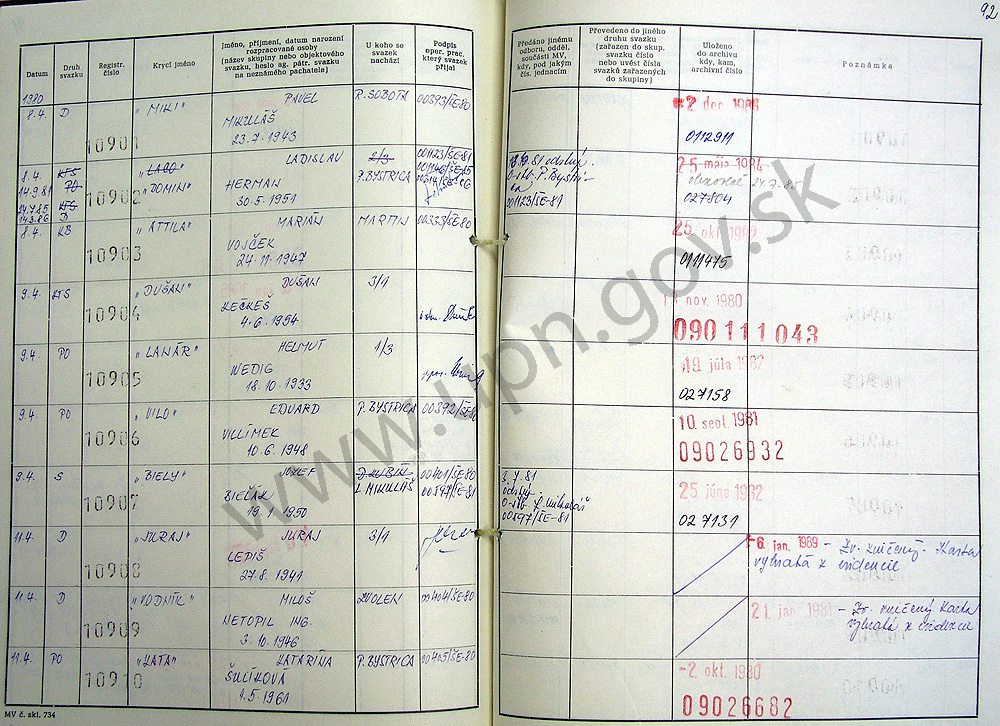 92
Datum
Druh svazku
Registr. číslo
Krycí jméno
Jméno, příjmení, datum narození
rozpracované osoby
(název skupiny nebo objektového
svazku, heslo ag. pátr. svazku
na neznámého pachatele)
U koho se
svazek
nachází
Podpis
oper. prac.
který svazek
přijal
Předáno jinému
odboru, odděl.
součásti MV,
kdy, pod jakým
čís. jednacím
Převedeno do jiného
druhu svazku
(zařazen do skup.
svazku číslo
nebo uvést čísla
svazků zařazených
do skupiny)
Uloženo
do archivu
kdy, kam,
archivní číslo
Poznámka
1980
8.4. D 10901 "MIKI" PAVEL R. SOBOTA 00393/ŠE-80
MIKULÁŠ
23.7.1943
2 dec 1985
0112911
8.4. KTS 10902 "LACO" LADISLAV 2/3 001123/ŠE-81
14.9.81 PO "DOMIN" HERMAN P. BYSTRICA
30.5.1951
24.7.85 KTS
14.3.86 D
001123/ŠE-81
25 mája 1984
24.9.85
027804
8.4. KB 10903 "ATTILA" MARIÁN MARTIN 00333/ŠE-80
VOJČEK
24.11.1947
25. okt.
0111475
9.4. KTS 10904 "DUŠAN" DUŠAN 3/1
KEČKEŠ
4.6.1954
nov. 1980
090111043
9.4. PO 10905 HELMUT 1/3
WEDIG
18.10.1933
19. júla 1982
027158
9.4. PO 10906 "VILO" EDUARD P. BYSTRICA 00392/ŠE-80
VILLÍMEK
10.6.1948
10. sept. 1981
09026932
9.4. S 10907 "BIELY" JOZEF D. KUBÍN 00401/ŠE-80
BIELÁK L. MIKULÁŠ 00597/ŠE-81
19.1.1950
3.7.81
00597/ŠE-81
25 júna 1982
027131
11.4. D 10908 "JURAJ" JURAJ 3/1
LEPIŠ
27.8.1941
-6. jan. 1989 - Zv. zničený. Karta
vybratá z evidencie
11.4. D 10909 "VODNÍK" MILOŠ ZVOLEN 00404/ŠE-80
NETOPIL ING.
3.10.1946
21. jan 1981 - Zv. zničený Karta
vybratá z evidencie
11.4. PO 10910 "KATA" KATARÍNA P. BYSTRICA 00405/ŠE-80
ŠULÍKOVÁ
1.5.1961
-2. okt. 1980
09026682
MV č. skl. 734
www.upn.gov.sk